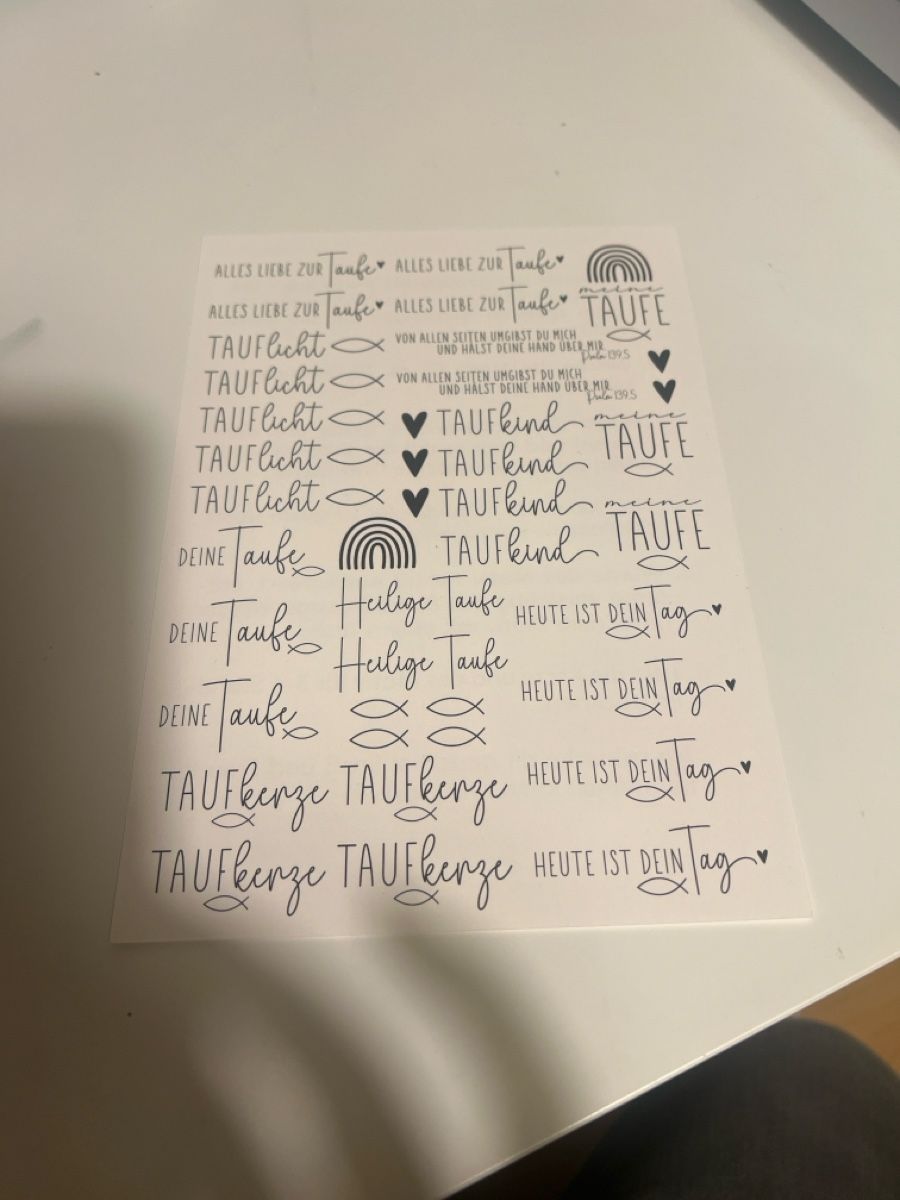 ALLES LIEBE ZUR Taufe
ALLES LIEBE ZUR Taufe
ALLES LIEBE ZUR Taufe
ALLES LIEBE ZUR Taufe
meine
TAUFE
TAUFlicht
VON ALLEN SEITEN UMGIBST DU MICH
UND HÄLST DEINE HAND ÜBER MIR
Psalm 139.5
TAUFlicht
VON ALLEN SEITEN UMGIBST DU MICH
UND HÄLST DEINE HAND ÜBER MIR
Psalm 139.5
TAUFlicht
TAUFkind
meine
TAUFE
TAUFlicht
TAUFkind
TAUFlicht
TAUFkind
meine
TAUFE
DEINE Taufe
TAUFkind
Heilige Taufe
HEUTE IST DEIN Tag
DEINE Taufe
Heilige Taufe
HEUTE IST DEIN Tag
DEINE Taufe
TAUFkerze
TAUFkerze
HEUTE IST DEIN Tag
TAUFkerze
TAUFkerze
HEUTE IST DEIN Tag